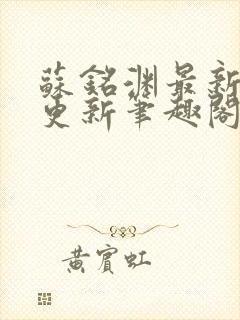 蘇銘淵最新
更新筆趣閣
黃賓虹